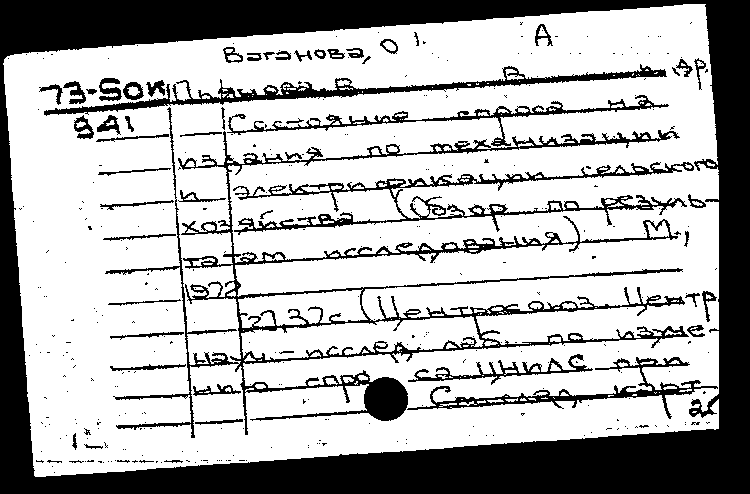 Ваганова, О А
73-SOK Пьянова В В и др.
941 Состояние спроса на
издания по механизации
и электрификации сельского
хозяйства. (Обзор по резуль-
татам исследования) М.,
1972
37с (Центросоюз. Центр.
научн.-исслед. лаб. по изуче-
нию спроса ЦНИЛС при
См. след. карт.